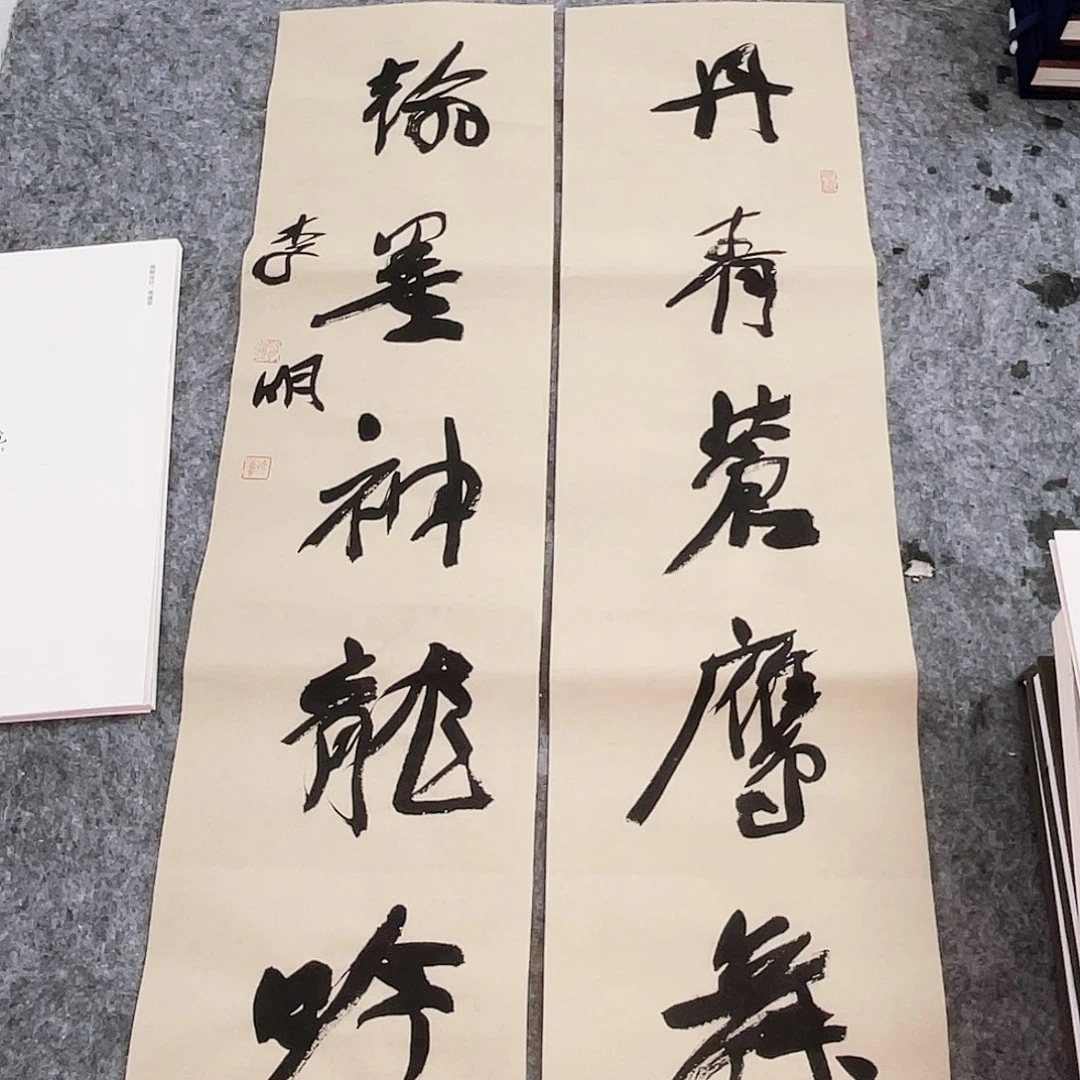 丹青蒼鷹舞
翰墨神龍吟
李明